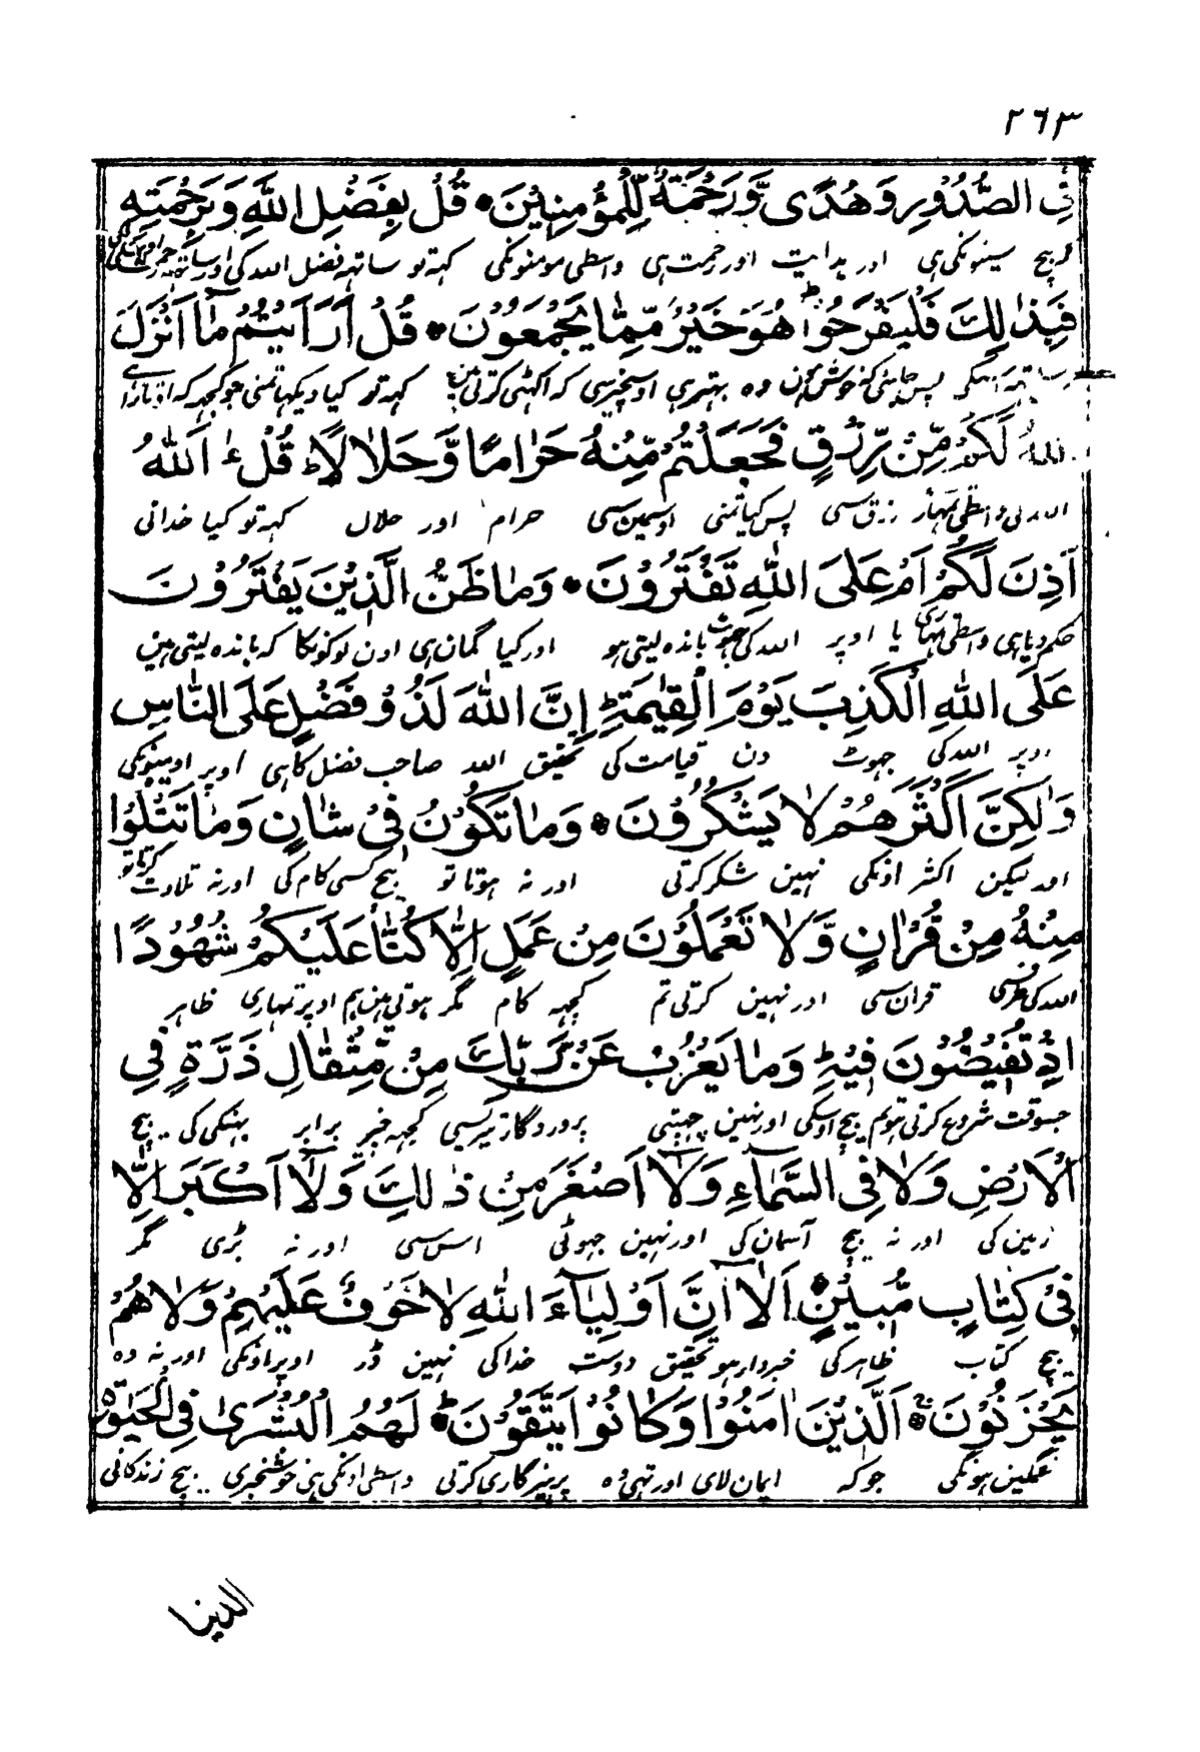 ٢٦٣
فِی الصُّدُوْرِ وَهُدًی وَّرَحْمَةٌ لِّلْمُؤْمِنِیْنَ۞ قُلْ بِفَضْلِ اللّٰهِ وَبِرَحْمَتِهٖ
بیچ سینونکی ہی اور ہدایت اور رحمت ہی واسطی مومنونکی کہہ تو ساتہہ فضل اللہ کی اور ساتہہ
فَبِذٰلِكَ فَلْیَفْرَحُوْا ؕ هُوَ خَیْرٌ مِّمَّا یَجْمَعُوْنَ۞ قُلْ اَرَاَیْتُمْ مَّاۤ اَنْزَلَ
پس چاہئی کہ خوش ہون وہ بہتر ہی اوسچیز سی کہ اکٹہی کرتی ہین کہہ تو کیا دیکہا تمنی جو کچہہ کہ اوتارا ہی
اللّٰهُ لَكُمْ مِّنْ رِّزْقٍ فَجَعَلْتُمْ مِّنْهُ حَرَامًا وَّحَلٰلًا ؕ قُلْ ءٰ اَللّٰهُ
اللہ نی واسطی تمہاری رزق سی پس کیا تمنی اوسمین سی حرام اور حلال کہہ تو کیا خدانی
اَذِنَ لَكُمْ اَمْ عَلَی اللّٰهِ تَفْتَرُوْنَ۞ وَمَا ظَنُّ الَّذِیْنَ یَفْتَرُوْنَ
حکم دیا ہی واسطی تمہاری یا اوپر اللہ کی جہوٹ باندہ لیتی ہو اور کیا گمان ہی اون لوگونکا کہ باندہ لیتی ہین
عَلَی اللّٰهِ الْكَذِبَ یَوْمَ الْقِیٰمَةِ ؕ اِنَّ اللّٰهَ لَذُوْ فَضْلٍ عَلَی النَّاسِ
اوپر اللہ کی جہوٹ دن قیامت کی تحقیق اللہ صاحب فضل کا ہی اوپر ادمیونکی
وَلٰكِنَّ اَكْثَرَهُمْ لَا یَشْكُرُوْنَ۞ وَمَا تَكُوْنُ فِیْ شَاْنٍ وَمَا تَتْلُوْا
اور لیکن اکثر اونکی نہین شکر کرتی اور نہ ہوتا تو بیچ کسی کام کی اور نہ تلاوت کرتا تو
مِنْهُ مِنْ قُرْاٰنٍ وَّلَا تَعْمَلُوْنَ مِنْ عَمَلٍ اِلَّا كُنَّا عَلَیْكُمْ شُهُوْدًا
اللہ کی طرف سی قران سی اور نہین کرتی تم کچہہ کام مگر ہوتی ہین ہم اوپر تمہاری ظاہر
اِذْ تُفِیْضُوْنَ فِیْهِ ؕ وَمَا یَعْزُبُ عَنْ رَّبِّكَ مِنْ مِّثْقَالِ ذَرَّةٍ فِی
جسوقت شروع کرتی ہو تم بیچ اوسکی اور نہین چہپتی پروردگار تیری سی کچہہ چیز برابر بہنگی کی بیچ
الْاَرْضِ وَلَا فِی السَّمَآءِ وَلَاۤ اَصْغَرَ مِنْ ذٰلِكَ وَلَاۤ اَكْبَرَ اِلَّا
زمین کی اور نہ بیچ آسمان کی اور نہین چہوٹی اس سی اور نہ بڑی مگر
فِیْ كِتٰبٍ مُّبِیْنٍ۞ اَلَاۤ اِنَّ اَوْلِیَآءَ اللّٰهِ لَا خَوْفٌ عَلَیْهِمْ وَلَا هُمْ
بیچ کتاب ظاہر کی خبردار ہو تحقیق دوست خدا کی نہین ڈر اوپر اونکی اور نہ وہ
یَحْزَنُوْنَ۞ اَلَّذِیْنَ اٰمَنُوْا وَكَانُوْا یَتَّقُوْنَ۞ لَهُمُ الْبُشْرٰی فِی الْحَیٰوةِ
غمگین ہونگی جو کہ ایمان لای اور تہی وہ پرہیزگاری کرتی واسطی اونکی ہی خوشخبری بیچ زندگانی
الدنیا